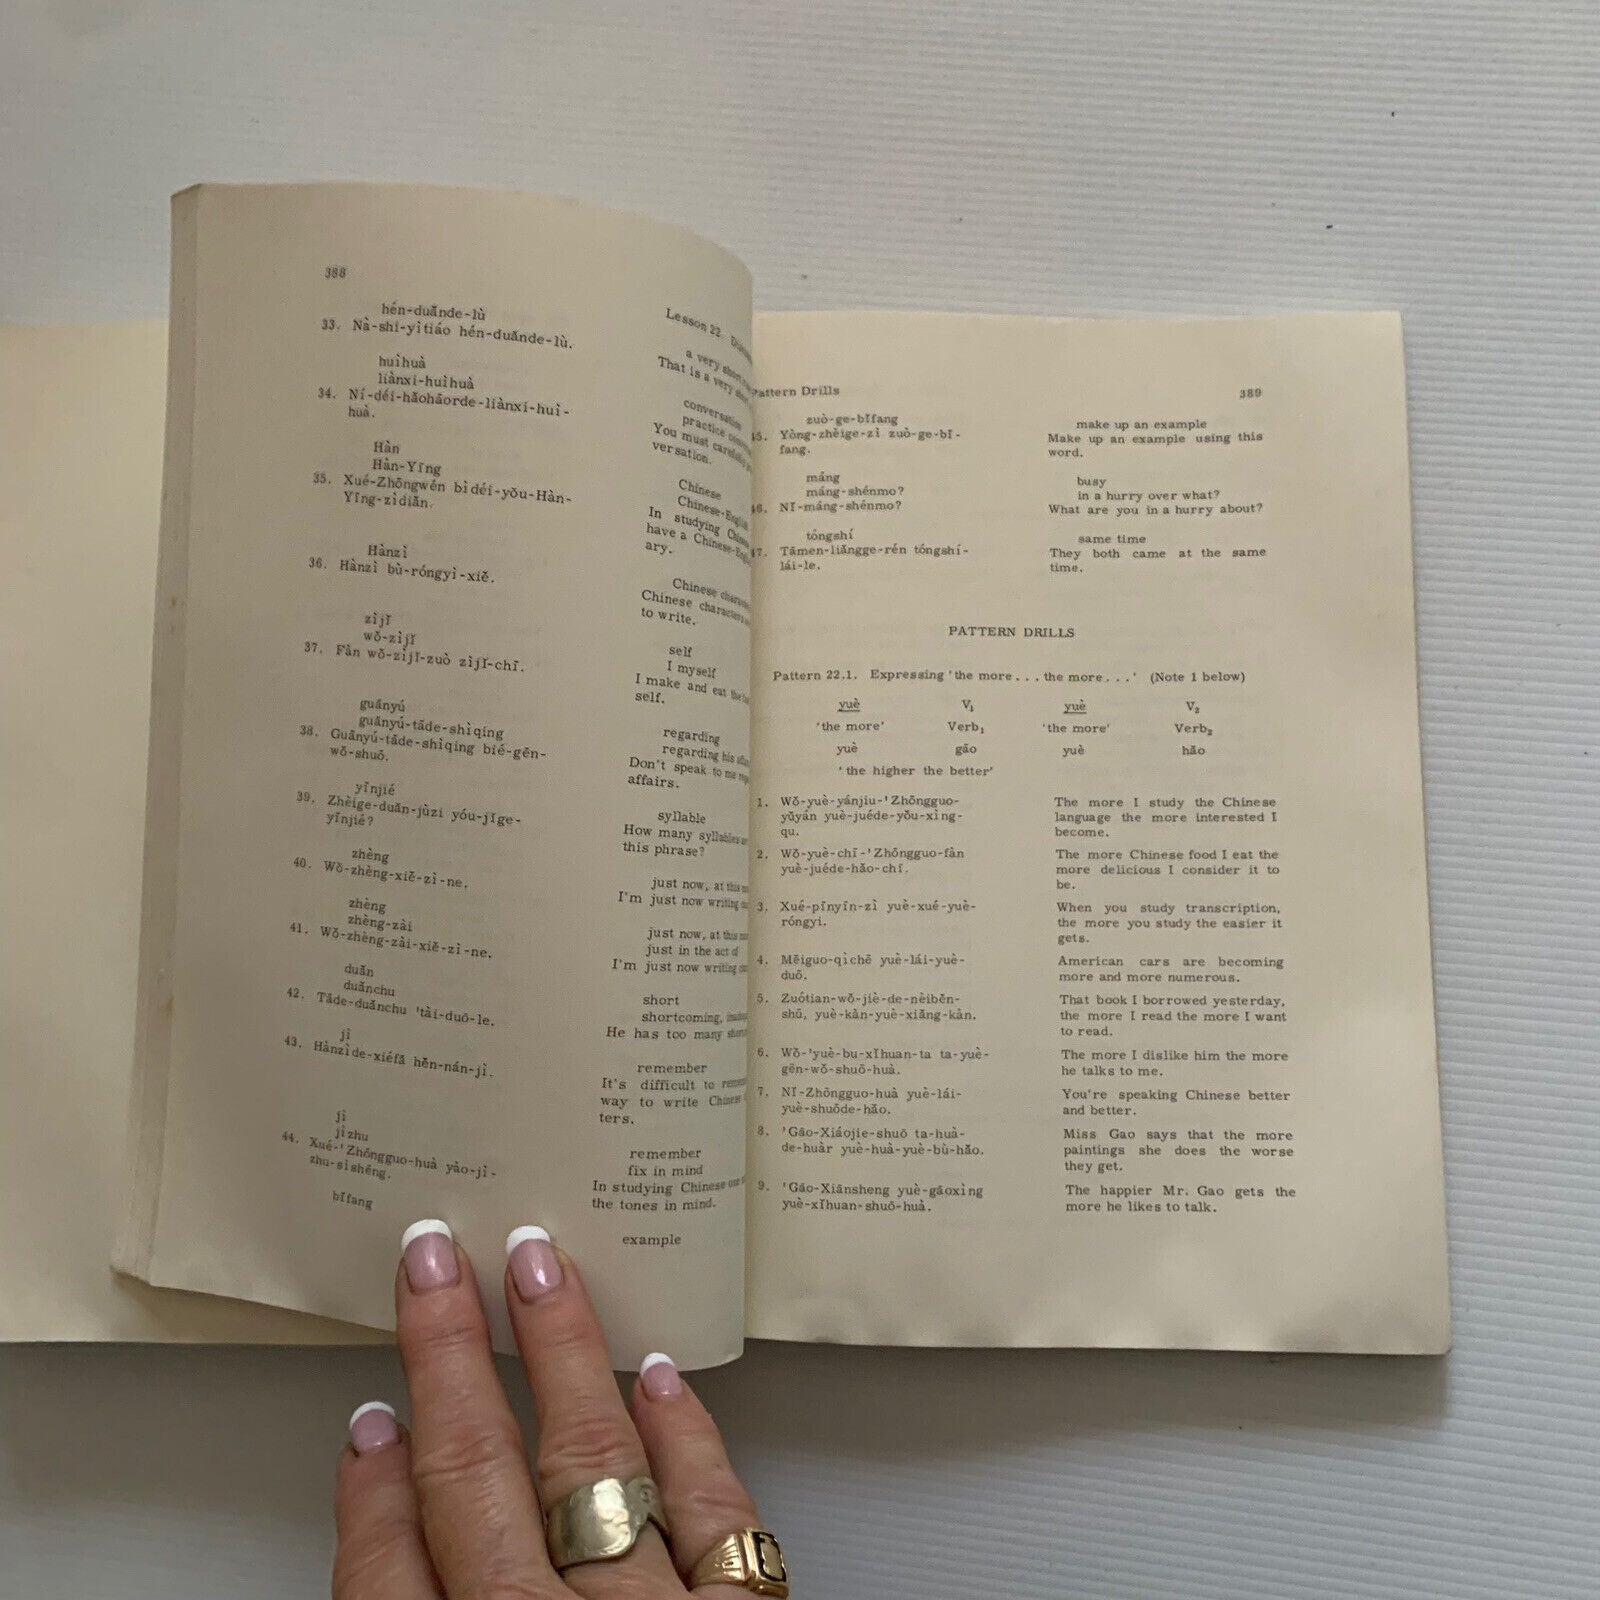 388
Lesson 22.
hén-duǎnde-lù
a very short
33. Nà-shi-yìtiáo hén-duǎnde-lù.
That is a very short
huìhuà
conversation
liànxi-huìhuà
practice
34. Ní-déi-hǎohāorde-liànxi-huì-
You must carefully
huà.
versation.
Hàn
Chinese
Hàn-Yīng
Chinese-English
35. Xué-Zhōngwén bìděi-yǒu-Hàn-
In studying Chinese
Yīng-zìdiǎn.
have a Chinese-
ary.
Hànzì
Chinese
36. Hànzì bù-róngyi-xiě.
Chinese characters
to write.
zìjǐ
self
wǒ-zìjǐ
I myself
37. Fàn wǒ-zìjǐ-zuò zìjǐ-chī.
I make and eat the
self.
guānyú
regarding
guānyú-tāde-shìqing
regarding his
38. Guānyú-tāde-shìqing bié-gēn-
Don't speak to me
wǒ-shuō.
affairs.
yīnjié
syllable
39. Zhèige-duǎn-jùzi yóu-jǐge-
How many syllables
yīnjié?
this phrase?
zhèng
just now, at this
40. Wǒ-zhèng-xiě-zì-ne.
I'm just now writing
zhèng
just now, at this
zhèng-zài
just in the act of
41. Wǒ-zhèng-zài-xiě-zì-ne.
I'm just now writing
duǎn
short
duǎnchu
shortcoming,
42. Tāde-duǎnchu 'tài-duō-le.
He has too many
jì
remember
43. Hànzìde-xiéfǎ hěn-nán-jì.
It's difficult to
way to write Chinese
ters.
jì
remember
jìzhu
fix in mind
44. Xué-'Zhōngguo-huà yào-jì-
In studying Chinese
zhu-sìshēng.
the tones in mind.
bǐfang
example
Pattern Drills 389
zuò-ge-bǐfang make up an example
Yòng-zhèige-zì zuò-ge-bǐ- Make up an example using this
fang. word.
máng busy
máng-shénmo? in a hurry over what?
Nǐ-máng-shénmo? What are you in a hurry about?
tóngshí same time
Tāmen-liǎngge-rén tóngshí- They both came at the same
lái-le. time.
PATTERN DRILLS
Pattern 22.1. Expressing 'the more . . . the more . . .' (Note 1 below)
yuè V₁ yuè V₂
'the more' Verb₁ 'the more' Verb₂
yuè gāo yuè hǎo
'the higher the better'
1. Wǒ-yuè-yánjiu-'Zhōngguo- The more I study the Chinese
yǔyán yuè-juéde-yǒu-xìng- language the more interested I
qu. become.
2. Wǒ-yuè-chī-'Zhōngguo-fàn The more Chinese food I eat the
yuè-juéde-hǎo-chī. more delicious I consider it to
be.
3. Xué-pīnyīn-zì yuè-xué-yuè- When you study transcription,
róngyi. the more you study the easier it
gets.
4. Měiguo-qìchē yuè-lái-yuè- American cars are becoming
duō. more and more numerous.
5. Zuótian-wǒ-jiè-de-nèiběn- That book I borrowed yesterday,
shū, yuè-kàn-yuè-xiǎng-kàn. the more I read the more I want
to read.
6. Wǒ-'yuè-bu-xǐhuan-ta ta-yuè- The more I dislike him the more
gēn-wǒ-shuō-huà. he talks to me.
7. Nǐ-Zhōngguo-huà yuè-lái- You're speaking Chinese better
yuè-shuōde-hǎo. and better.
8. 'Gāo-Xiáojie-shuō ta-huà- Miss Gao says that the more
de-huàr yuè-huà-yuè-bù-hǎo. paintings she does the worse
they get.
9. 'Gāo-Xiānsheng yuè-gāoxìng The happier Mr. Gao gets the
yuè-xǐhuan-shuō-huà. more he likes to talk.